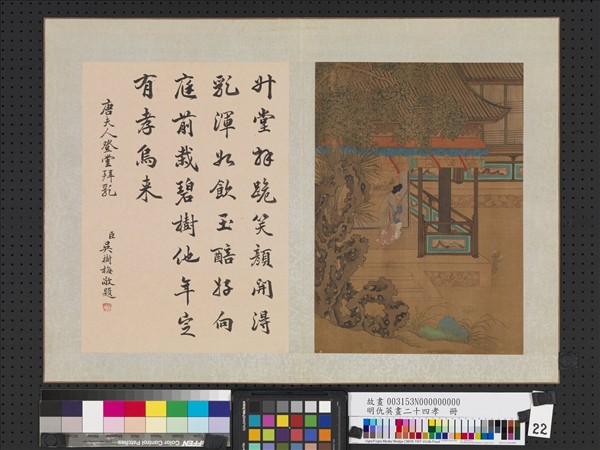 升堂拜跪笑顏開得
乳渾如飲玉醅好向
庭前栽碧樹他年定
有孝烏来
唐夫人登堂拜乳
臣吳樹梅敬題
故畫 003153N000000000
明仇英畫二十四孝 冊
22
Color Control Patches